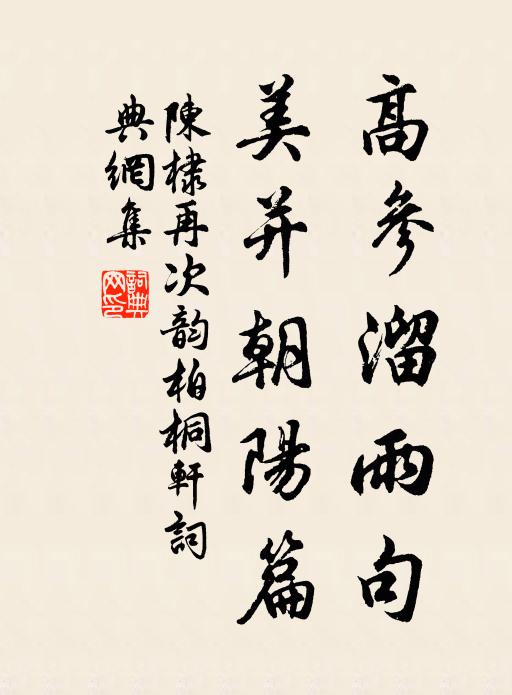 高參溜雨句
美并朝陽篇
陳棣再次韵柏桐軒詞
典網集
詞典網印